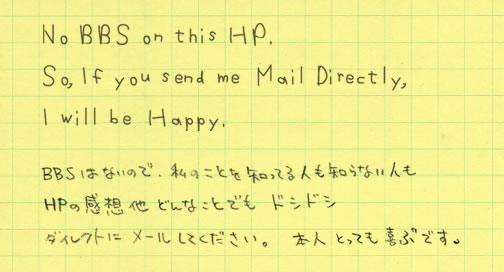 No BBS on this HP.
So, If you send me Mail Directly,
I will be Happy.
BBSはないので、私のことを知ってる人も知らない人も
HPの感想他どんなことでも ドシドシ
ダイレクトに メールしてください。 本人とっても喜ぶです。